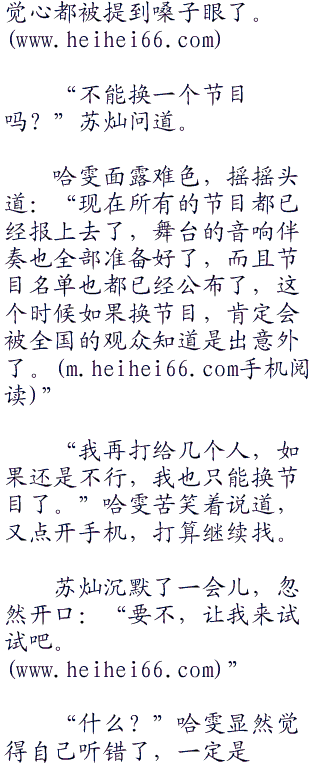 觉心都被提到嗓子眼了。
(www.heihei66.com)
“不能换一个节目
吗？”苏灿问道。
哈雯面露难色，摇摇头
道：“现在所有的节目都已
经报上去了，舞台的音响伴
奏也全部准备好了，而且节
目名单也都已经公布了，这
个时候如果换节目，肯定会
被全国的观众知道是出意外
了。(m.heihei66.com手机阅
读)”
“我再打给几个人，如
果还是不行，我也只能换节
目了。”哈雯苦笑着说道，
又点开手机，打算继续找。
苏灿沉默了一会儿，忽
然开口：“要不，让我来试
试吧。
(www.heihei66.com)”
“什么？”哈雯显然觉
得自己听错了，一定是